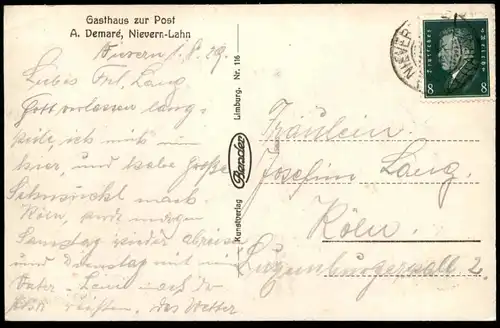 Gasthaus zur Post
A. Demaré, Nievern-Lahn
Nievern 1.8.29.
Liebes Frl. Lang
Gott verlassen lang-
weile ich mich nun
hier, und habe große
Sehnsucht nach
Köln, werde morgen
Samstag wieder abreisen
und Dienstag mit
nach
das Wetter
Kunstverlag Bender Limburg. Nr. 116
NIEVER
Deutsches Reich
8 8
Fräulein
Josefine Lang.
Köln.
Luxemburgerwall 2.